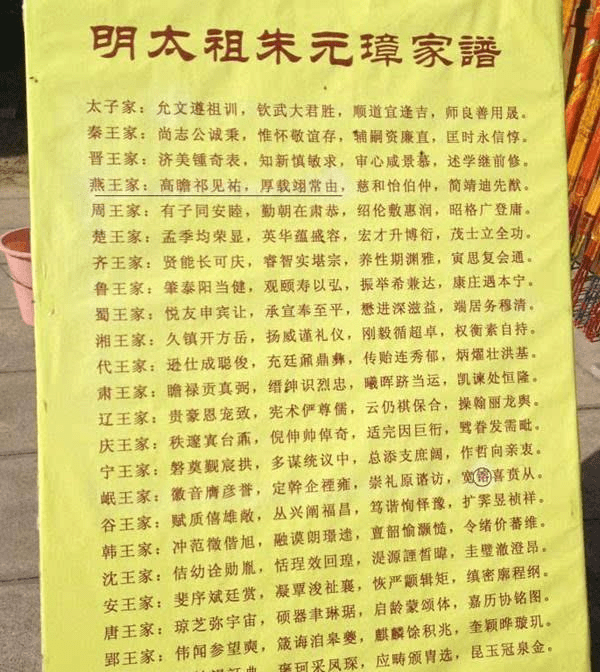 明太祖朱元璋家譜
太子家：允文遵祖训，钦武大君胜，顺道宜逢吉，师良善用晟。
秦王家：尚志公诚秉，惟怀敬谊存，辅嗣资廉直，匡时永信惇。
晋王家：济美锺奇表，知新慎敏求，审心咸景慕，述学继前修。
燕王家：高瞻祁见祐，厚载翊常由，慈和怡伯仲，简靖迪先猷。
周王家：有子同安睦，勤朝在肃恭，绍伦敷惠润，昭格广登庸。
楚王家：孟季均荣显，英华蕴盛容，宏才升博衍，茂士立全功。
齐王家：贤能长可庆，睿智实堪宗，养性期渊雅，寅思复会通。
鲁王家：肇泰阳当健，观颐寿以弘，振举希兼达，康庄遇本宁。
蜀王家：悦友申宾让，承宣奉至平，懋进深滋益，端居务穆清。
湘王家：久镇开方岳，扬威谨礼仪，刚毅循超卓，权衡素自持。
代王家：逊仕成聪俊，充廷鼐鼎彝，传贻连秀郁，炳耀壮洪基。
肃王家：瞻禄贡真弼，缙绅识烈忠，曦晖跻当运，凯谏处恒隆。
辽王家：贵豪恩宠致，宪术俨尊儒，云仍祺保合，操翰丽龙舆。
庆王家：秩邃寘台鼒，倪伸帅倬奇，适完因巨衍，發需毗。
宁王家：磐奠觐宸拱，多谋统议中，总添支庶阔，作哲向亲衷。
岷王家：徽音膺彦誉，定幹企禋雍，崇礼原谘访，宽镕喜贲从。
谷王家：赋质僖雄敞，丛兴阐福昌，笃谐恂怿豫，扩霁昱祯祥。
韩王家：冲范徵偕旭，融谟朗璟逵，亶韶愉灏慥，令绪价蕃维。
沈王家：佶幼诠勋胤，恬珵效回瑝，湜源諲晢暐，圭璧澈澄昂。
安王家：斐序斌廷赏，凝覃浚祉襄，恢严颛辑矩，缜密廓程纲。
唐王家：琼芝弥宇宙，硕器聿琳琚，启龄蒙颂体，嘉历协铭图。
郢王家：伟闻参望奭，箴诲洎皋夔，麒麟馀积兆，奎颖晔璇玑。
褒珂采凤琛，应畴颁胄选，昆玉冠泉金。